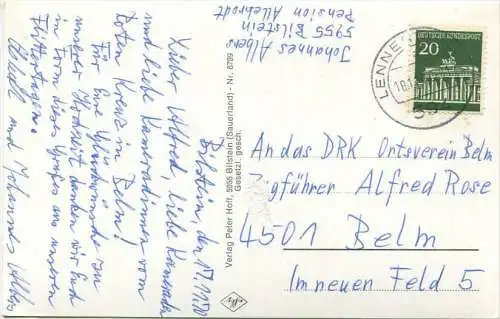 Johannes Albers
5955 Bilstein
Pension Allebrodt
Bilstein, den
Lieber Alfred, liebe Kameraden
und liebe Kameradinnen vom
Roten Kreuz in Belm!
Für Eure Glückwünsche von
unserer Hochzeit danken wir Euch
in Form dieses Grußes aus unseren
Flittertagen.
und Johannes Albers
Verlag Peter Hoff, 5955 Bilstein (Sauerland) - Nr. 8769
Gesetzl. gesch.
DEUTSCHE BUNDESPOST
20
LENNE
An das DRK Ortsverein Belm
Zigführer Alfred Rose
4501 Belm
Im neuen Feld 5